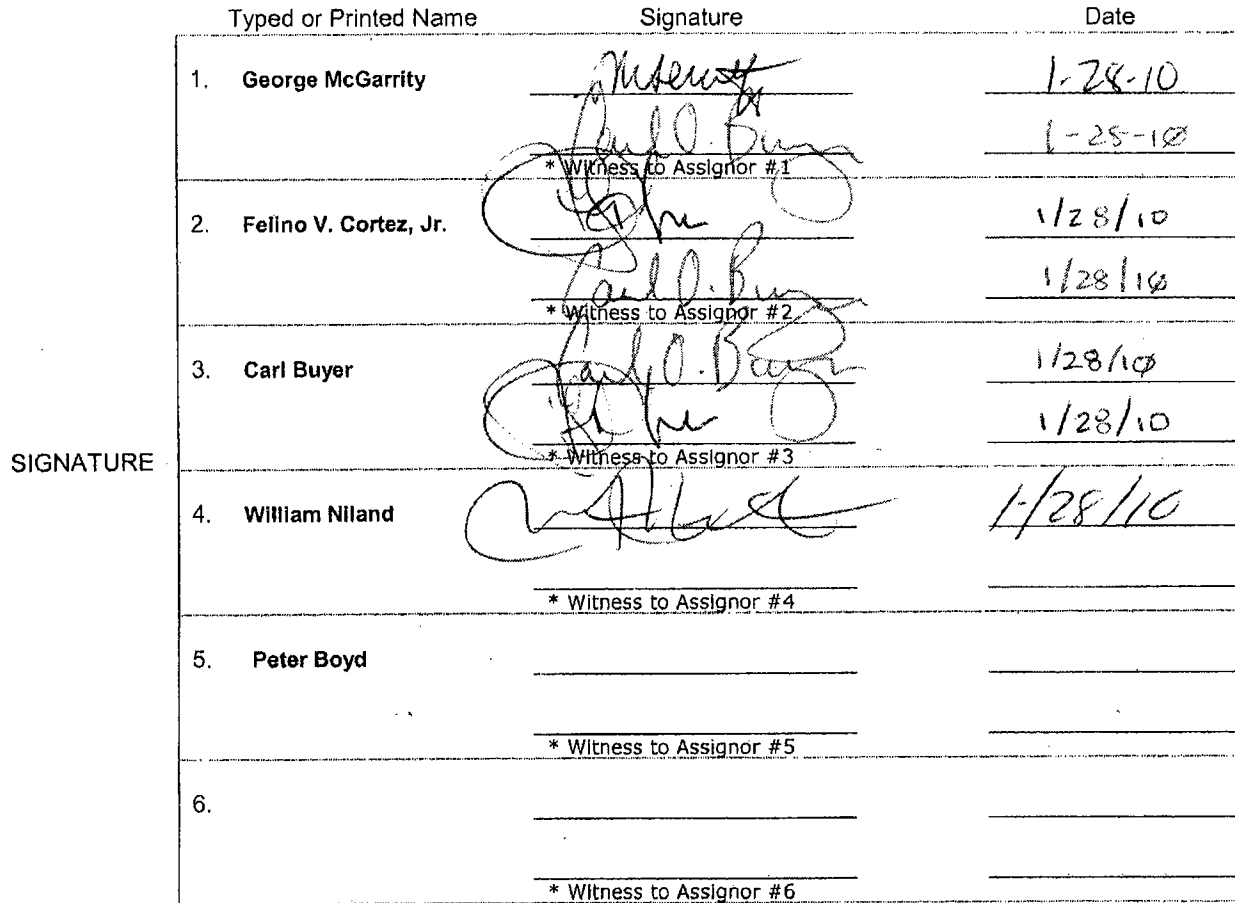 Typed or Printed Name Signature Date
1. George McGarrity 1-28-10
Carl O. Buyer 1-28-10
* Witness to Assignor #1
2. Felino V. Cortez, Jr. 1/28/10
Carl O. Buyer 1/28/10
* Witness to Assignor #2
3. Carl Buyer Carl O. Buyer 1/28/10
1/28/10
* Witness to Assignor #3
SIGNATURE
4. William Niland 1/28/10
* Witness to Assignor #4
5. Peter Boyd
* Witness to Assignor #5
6.
* Witness to Assignor #6